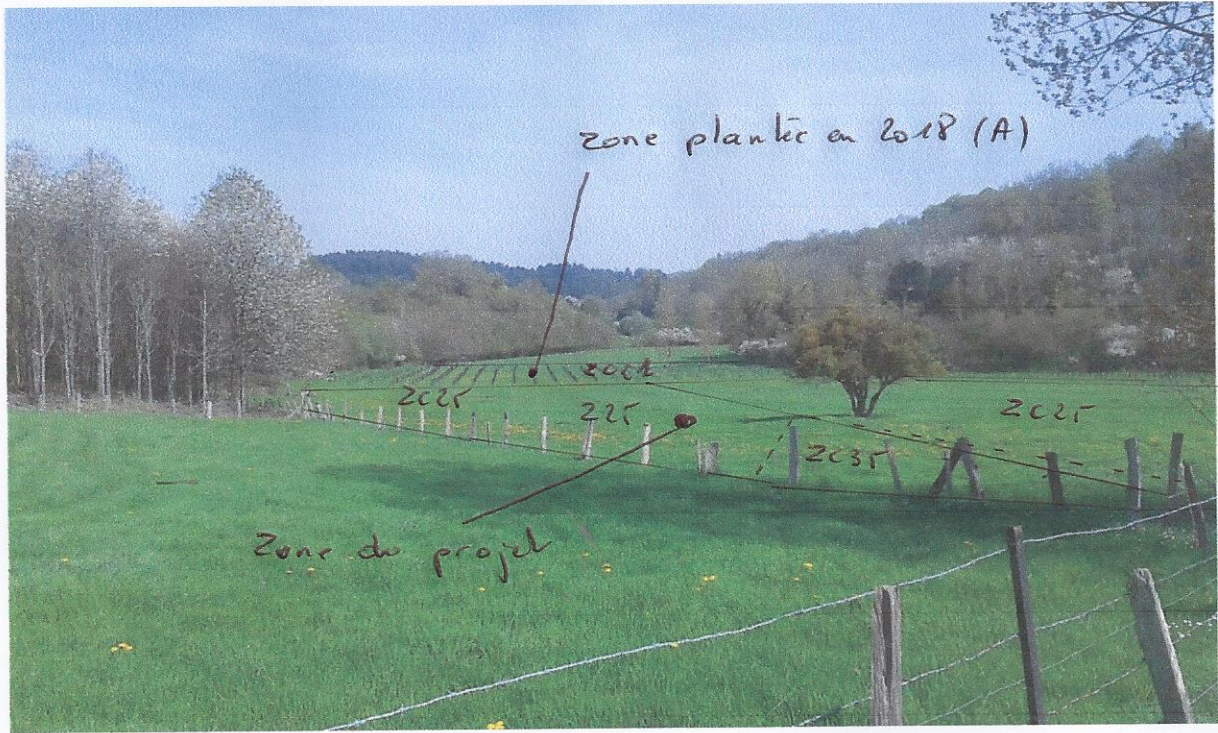 zone plantée en 2018 (A)
ZC25
225
ZC25
ZC35
Zone du projet